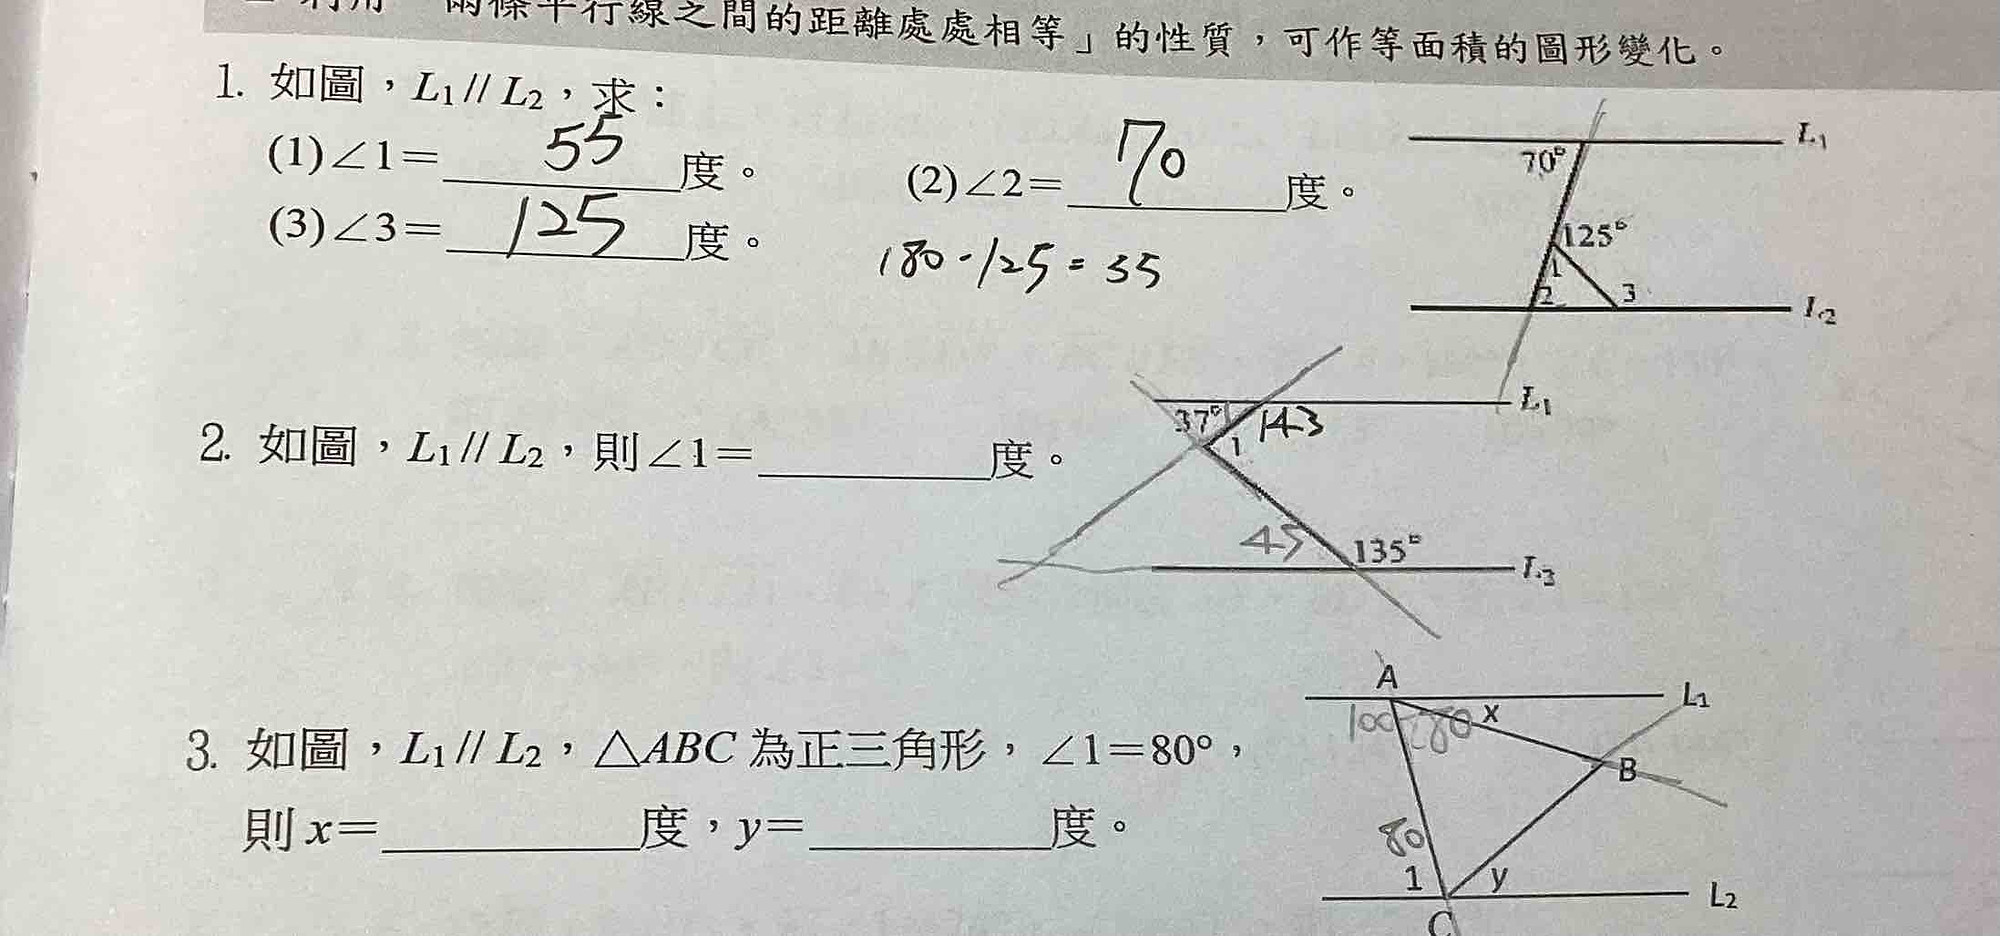 利用「兩條平行線之間的距離處處相等」的性質，可作等面積的圖形變化。
1. 如圖，L₁// L₂，求：
(1)∠1＝ 55 度。 (2)∠2＝ 70 度。
(3)∠3＝ 125 度。
180-125=55
L₁
70°
125°
1
2 3
L₂
2. 如圖，L₁// L₂，則∠1＝ 度。
L₁
37° 143
1
45 135°
L₂
3. 如圖，L₁// L₂，△ABC 為正三角形，∠1＝80°，
則 x＝ 度，y＝ 度。
A
L₁
100 80 x
B
80
1 y
L₂
C